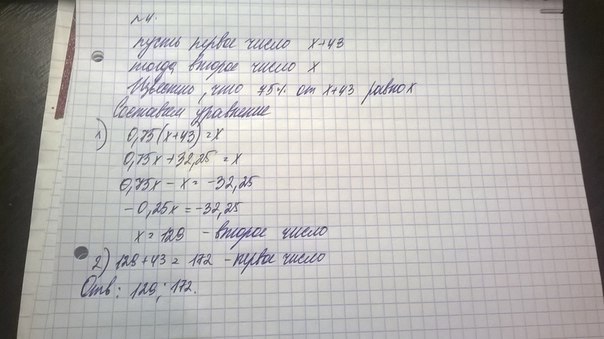 №4.
пусть первое число x+43
тогда второе число x
Известно, что 75% от x+43 равно x
Составим уравнение
1) 0,75(x+43)=x
0,75x+32,25=x
0,75x-x=-32,25
-0,25x=-32,25
x=129 - второе число
2) 129+43=172 - первое число
Отв: 129; 172.